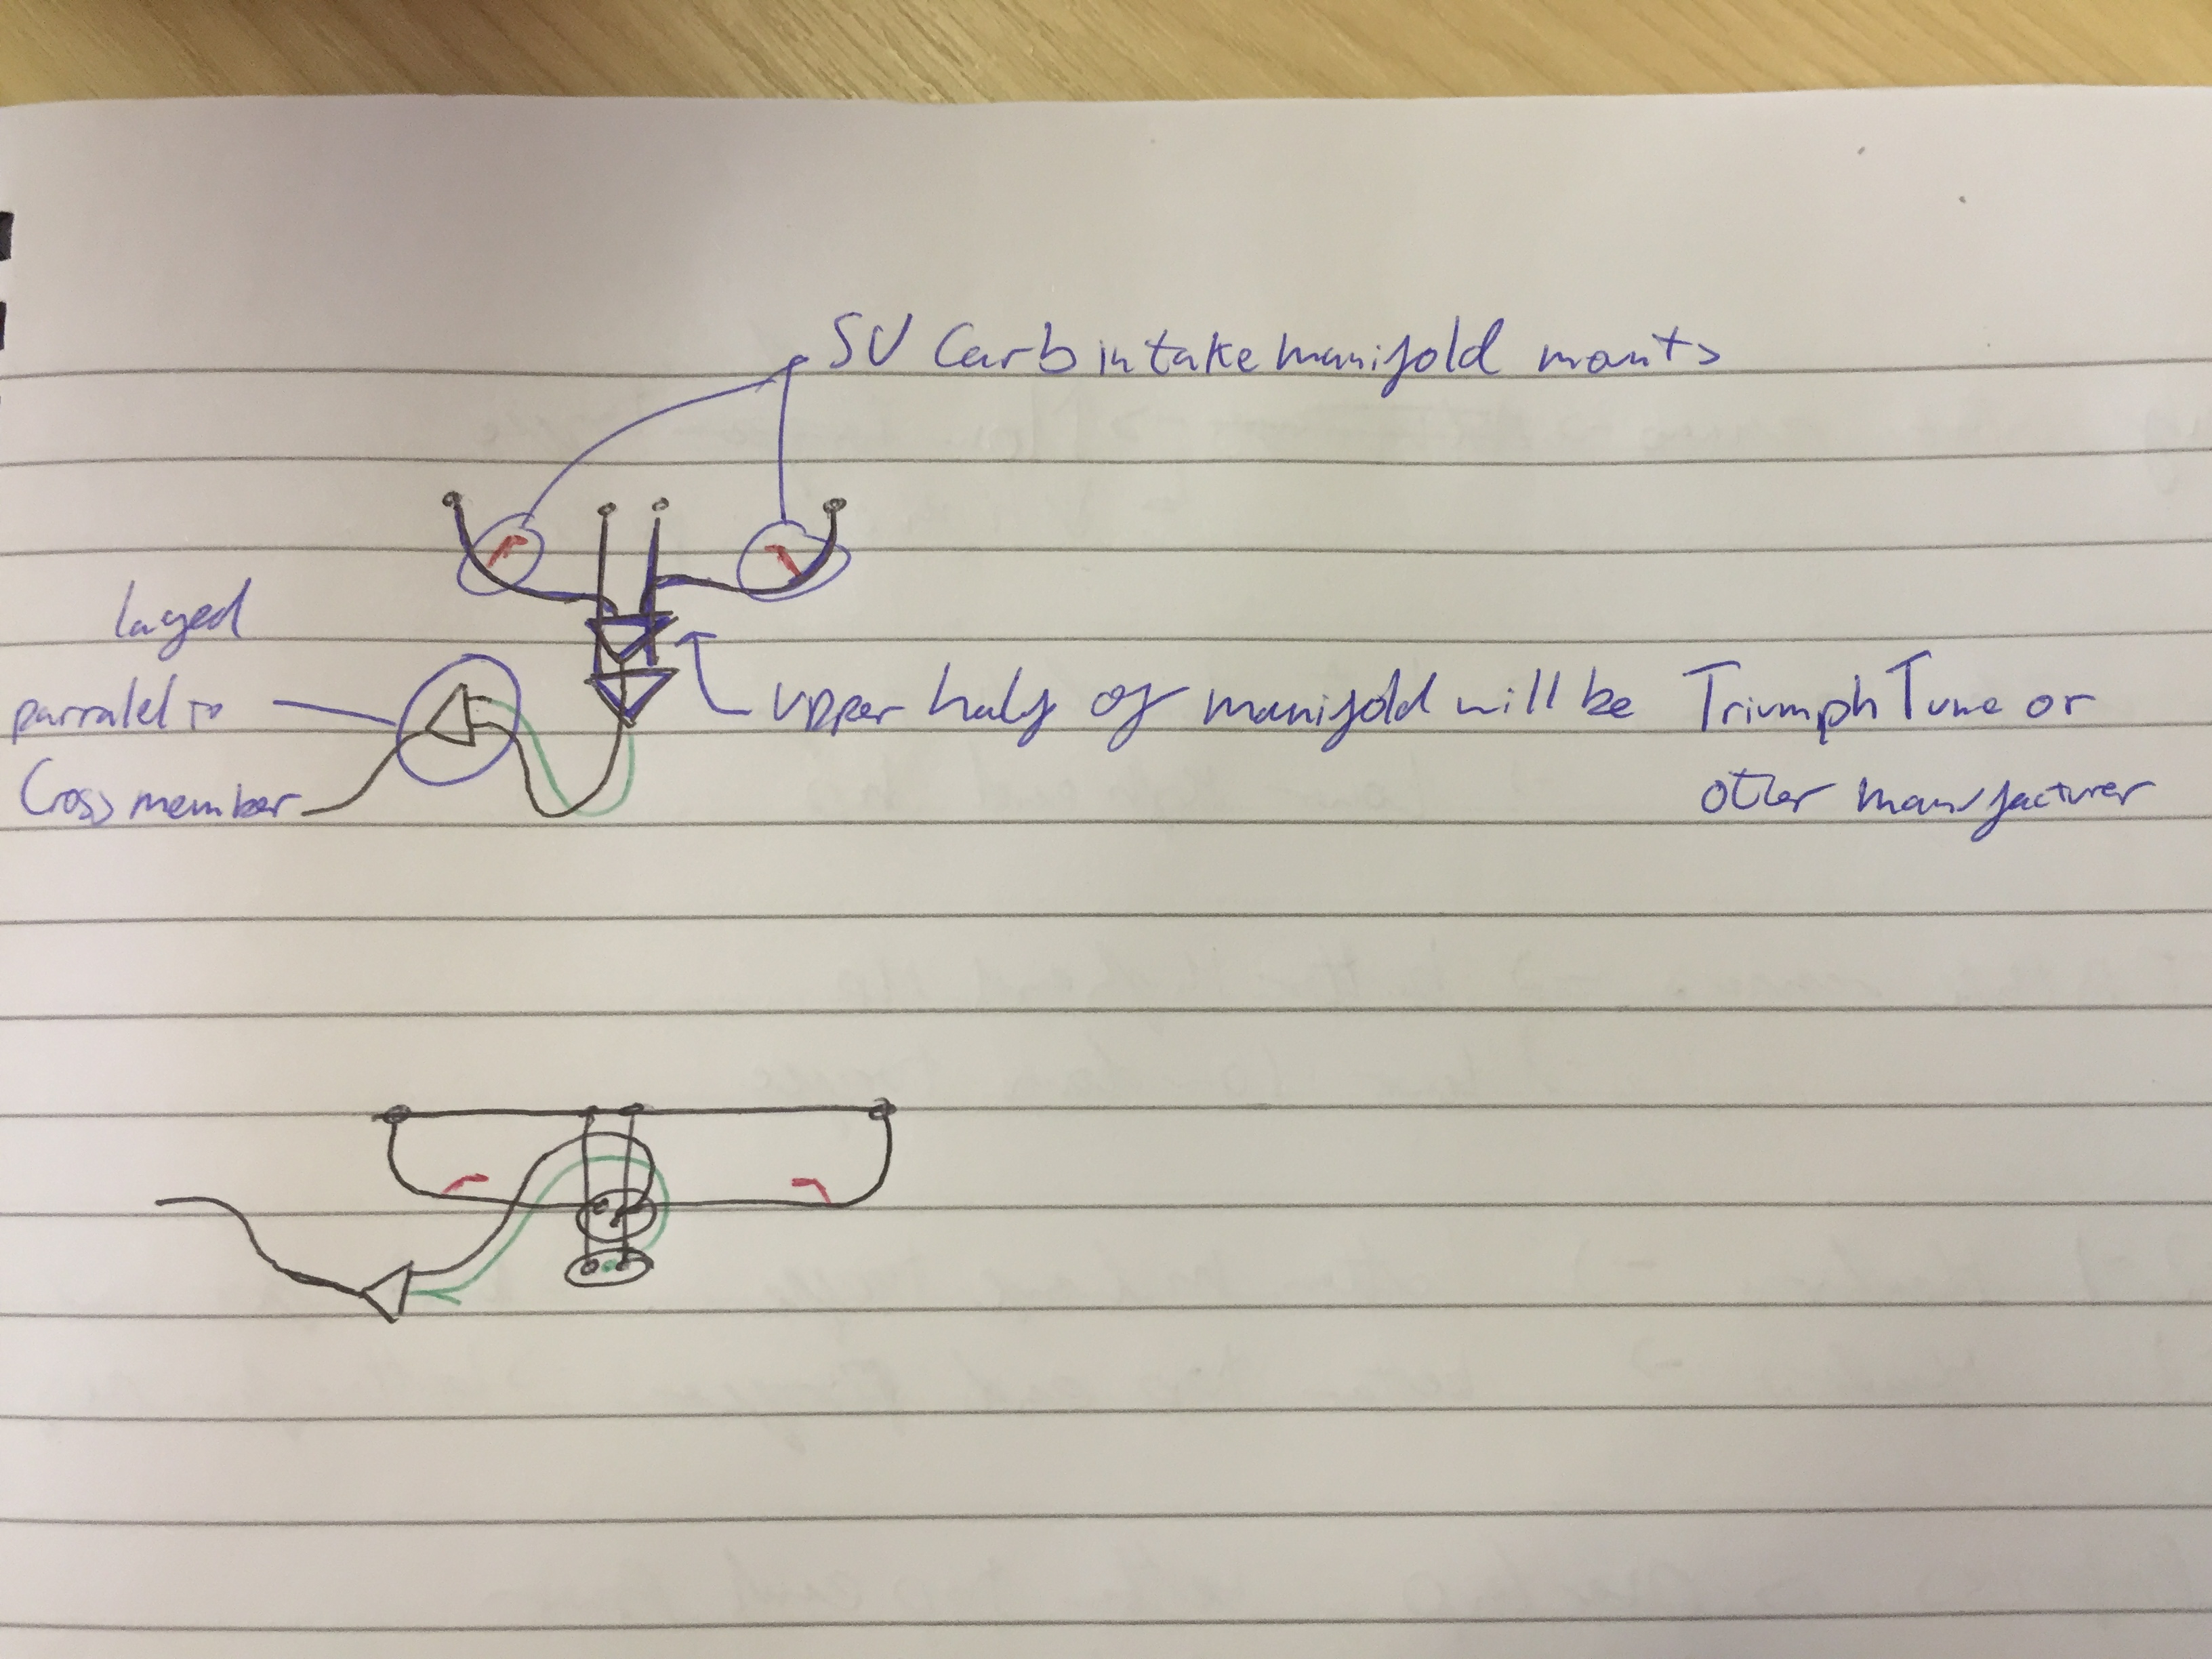 SU Carb intake manifold mounts
layed
parralel to
Cross member
Upper half of manifold will be Triumph Tune or
other manufacturer